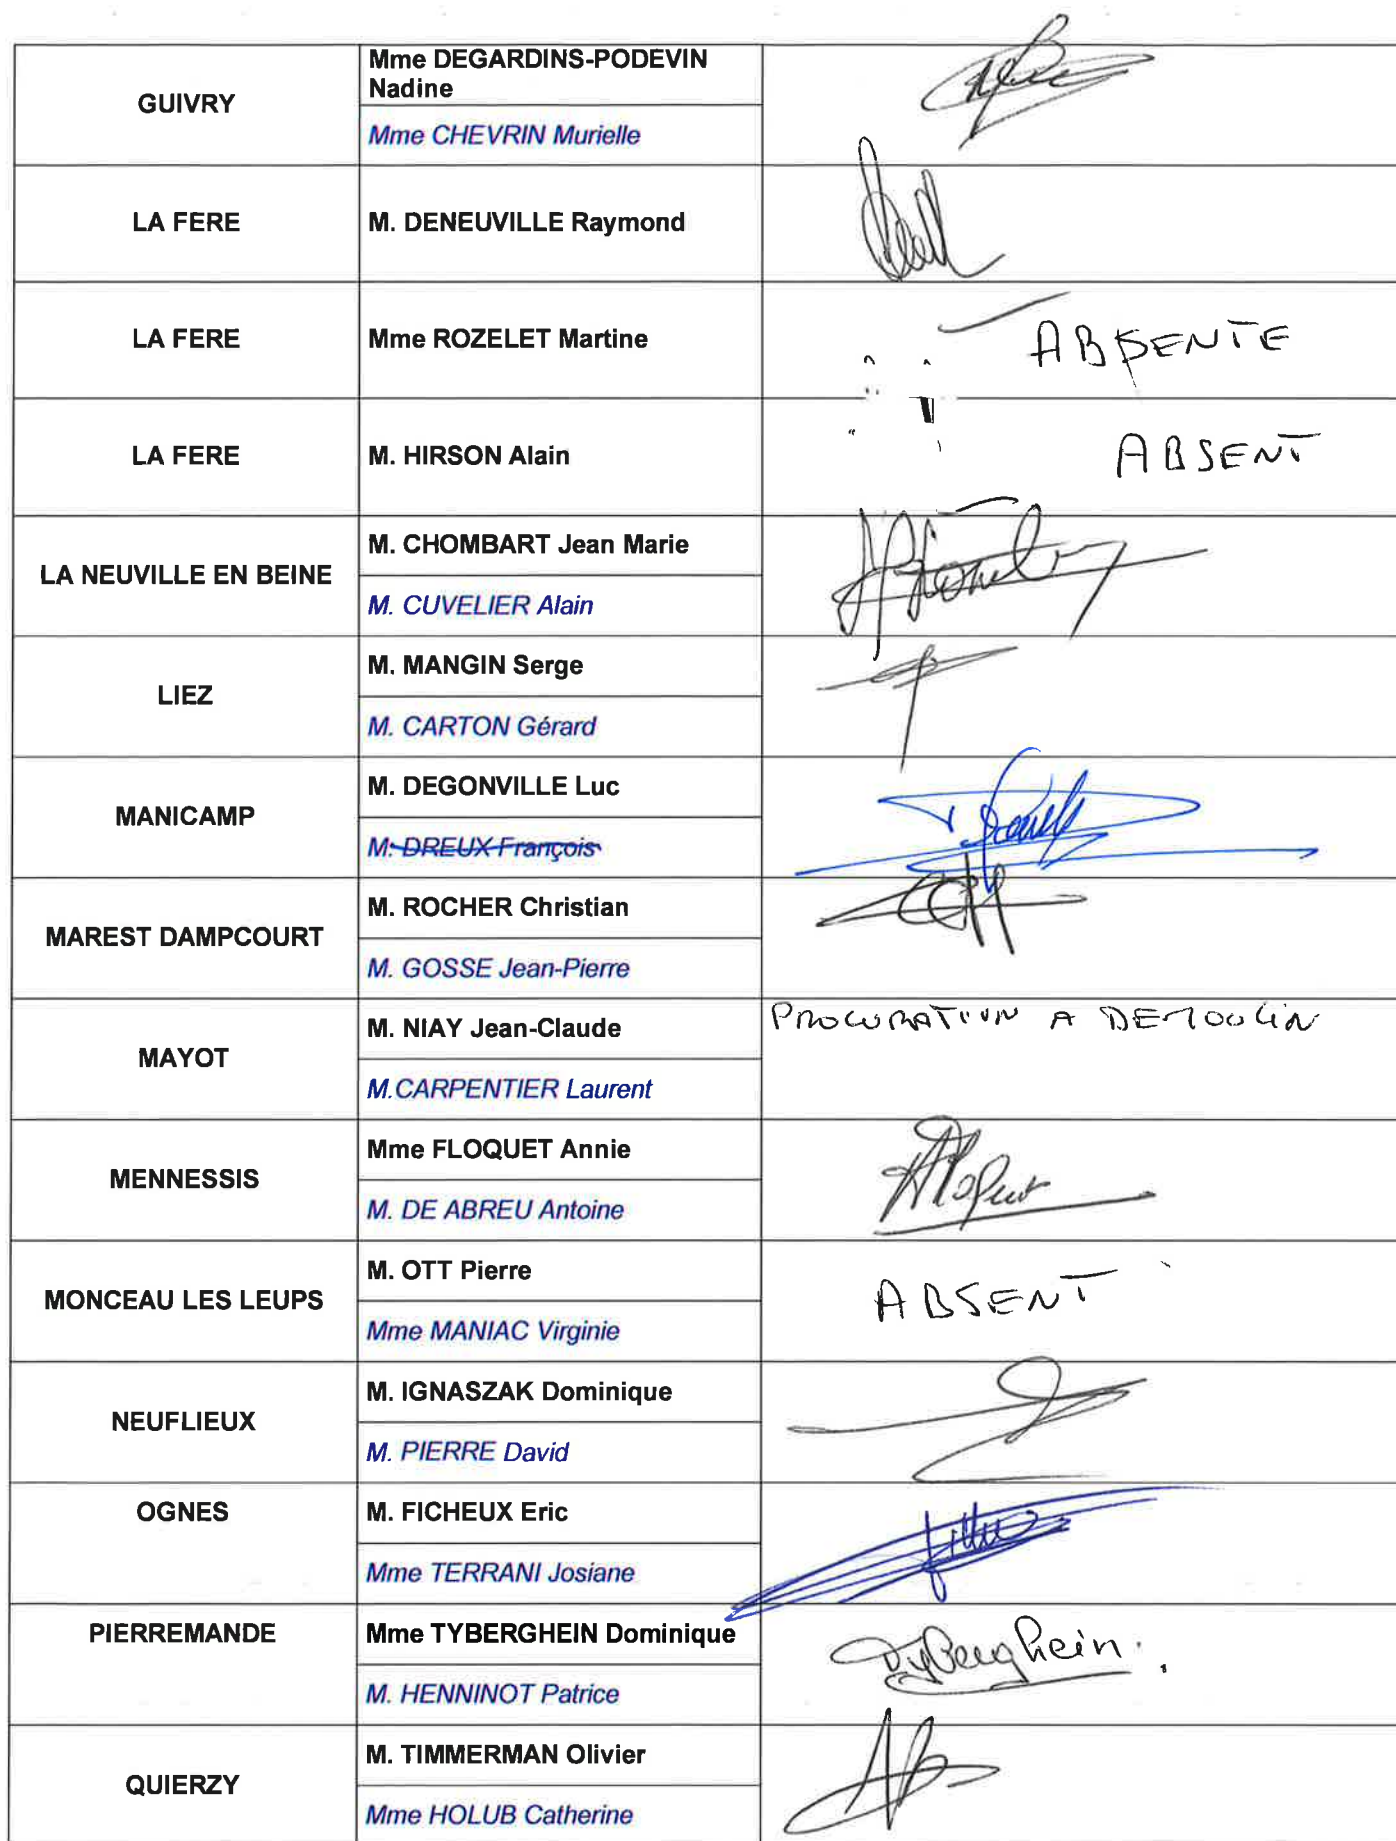 GUIVRY
Mme DEGARDINS-PODEVIN
Nadine
Mme CHEVRIN Murielle
LA FERE
M. DENEUVILLE Raymond
LA FERE
Mme ROZELET Martine
ABSENTE
LA FERE
M. HIRSON Alain
ABSENT
LA NEUVILLE EN BEINE
M. CHOMBART Jean Marie
M. CUVELIER Alain
LIEZ
M. MANGIN Serge
M. CARTON Gérard
MANICAMP
M. DEGONVILLE Luc
M. DREUX François
MAREST DAMPCOURT
M. ROCHER Christian
M. GOSSE Jean-Pierre
MAYOT
M. NIAY Jean-Claude
PROCURATION A DEMOULIN
M.CARPENTIER Laurent
MENNESSIS
Mme FLOQUET Annie
M. DE ABREU Antoine
MONCEAU LES LEUPS
M. OTT Pierre
ABSENT
Mme MANIAC Virginie
NEUFLIEUX
M. IGNASZAK Dominique
M. PIERRE David
OGNES
M. FICHEUX Eric
Mme TERRANI Josiane
PIERREMANDE
Mme TYBERGHEIN Dominique
Tyberghein.
M. HENNINOT Patrice
QUIERZY
M. TIMMERMAN Olivier
Mme HOLUB Catherine